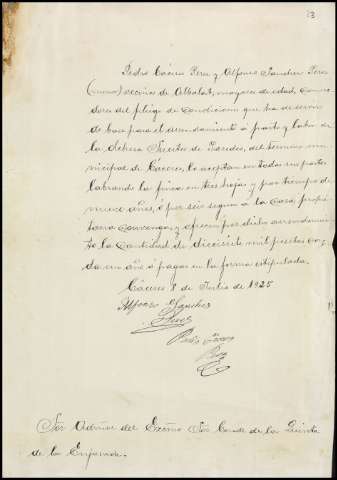 13
Pedro Cáceres Perez y Alfonso Sanchez Perez
(menor) vecinos de Albalat, mayores de edad, conoce-
dores del pliego de condiciones que ha de servir
de base para el arrendamiento á pasto y labor de
la dehesa Suertes de Paredes, del termino mu-
nicipal de Cáceres, lo aceptan en todas sus partes
labrando la finca en tres hojas y por tiempo de
nueve años, ó por seis segun á la Casa propie-
taria convenga, y ofrecen por dicho arrendamien-
to la cantidad de dieciseis mil pesetas ca-
da un año á pagar en la forma estipulada.
Cáceres 8 de Julio de 1925
Alfonso Sanchez
Perez
Pedro Cáceres
Perez
Sor Admor del Excmo Sor Conde de la Quinta
de la Enjarada.